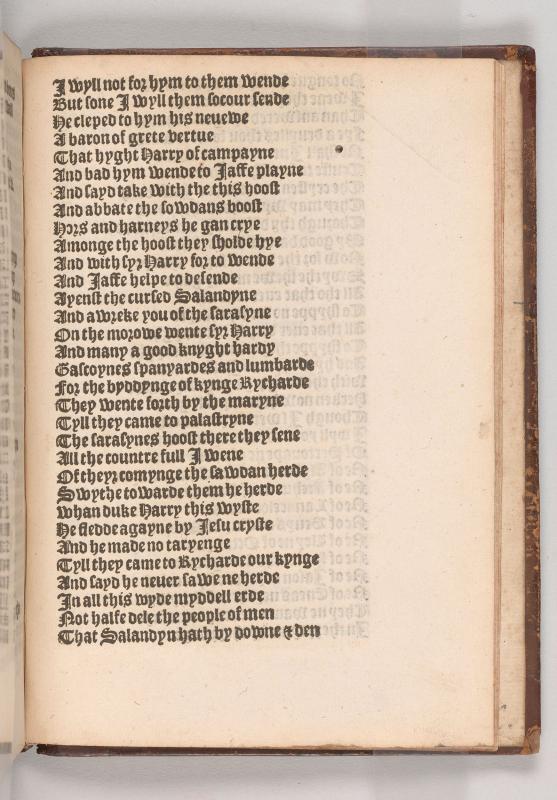 I wyll not for hym to them wende
But sone I wyll them socour sende
He cleped to hym his neuewe
A baron of grete vertue
That hyght Harry of campayne
And bad hym wende to Jaffe playne
And sayd take with the this hoost
And abbate the sowdans boost
Hors and harneys he gan crye
Amonge the hoost they sholde hye
And with syr Harry for to wende
And Jaffe helpe to defende
Ayenst the cursed Salandyne
And awreke you of the sarasyne
On the morowe wente syr Harry
And many a good knyght hardy
Gascoynes spanyardes and lumbarde
For the byddynge of kynge Rycharde
They wente forth by the maryne
Tyll they came to palastryne
The sarasynes hoost there they sene
All the countre full I wene
Of theyr comynge the sawdan herde
Swythe towarde them he herde
whan duke Harry this wyste
He fledde agayne by Jesu cryste
And he made no taryenge
Tyll they came to Rycharde our kynge
And sayd he neuer sawe ne herde
In all this wyde myddell erde
Not halfe dele the people of men
That Salandyn hath by downe & den